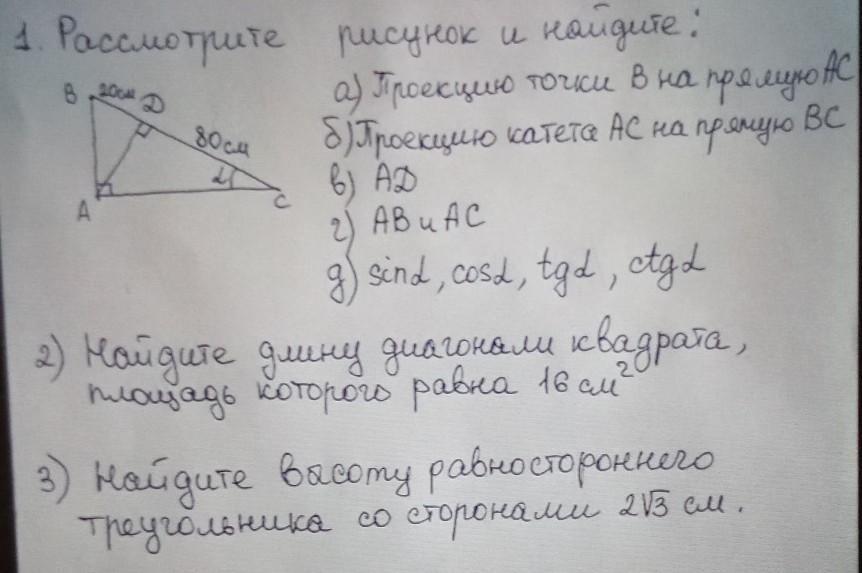 1. Рассмотрите рисунок и найдите:
а) Проекцию точки В на прямую АС
б) Проекцию катета АС на прямую ВС
в) AD
г) АВ и АС
д) sinα, cosα, tgα, ctgα
B 20см D
80см
α
A
C
2) Найдите длину диагонали квадрата,
площадь которого равна 16 см²
3) Найдите высоту равностороннего
треугольника со сторонами 2√3 см.